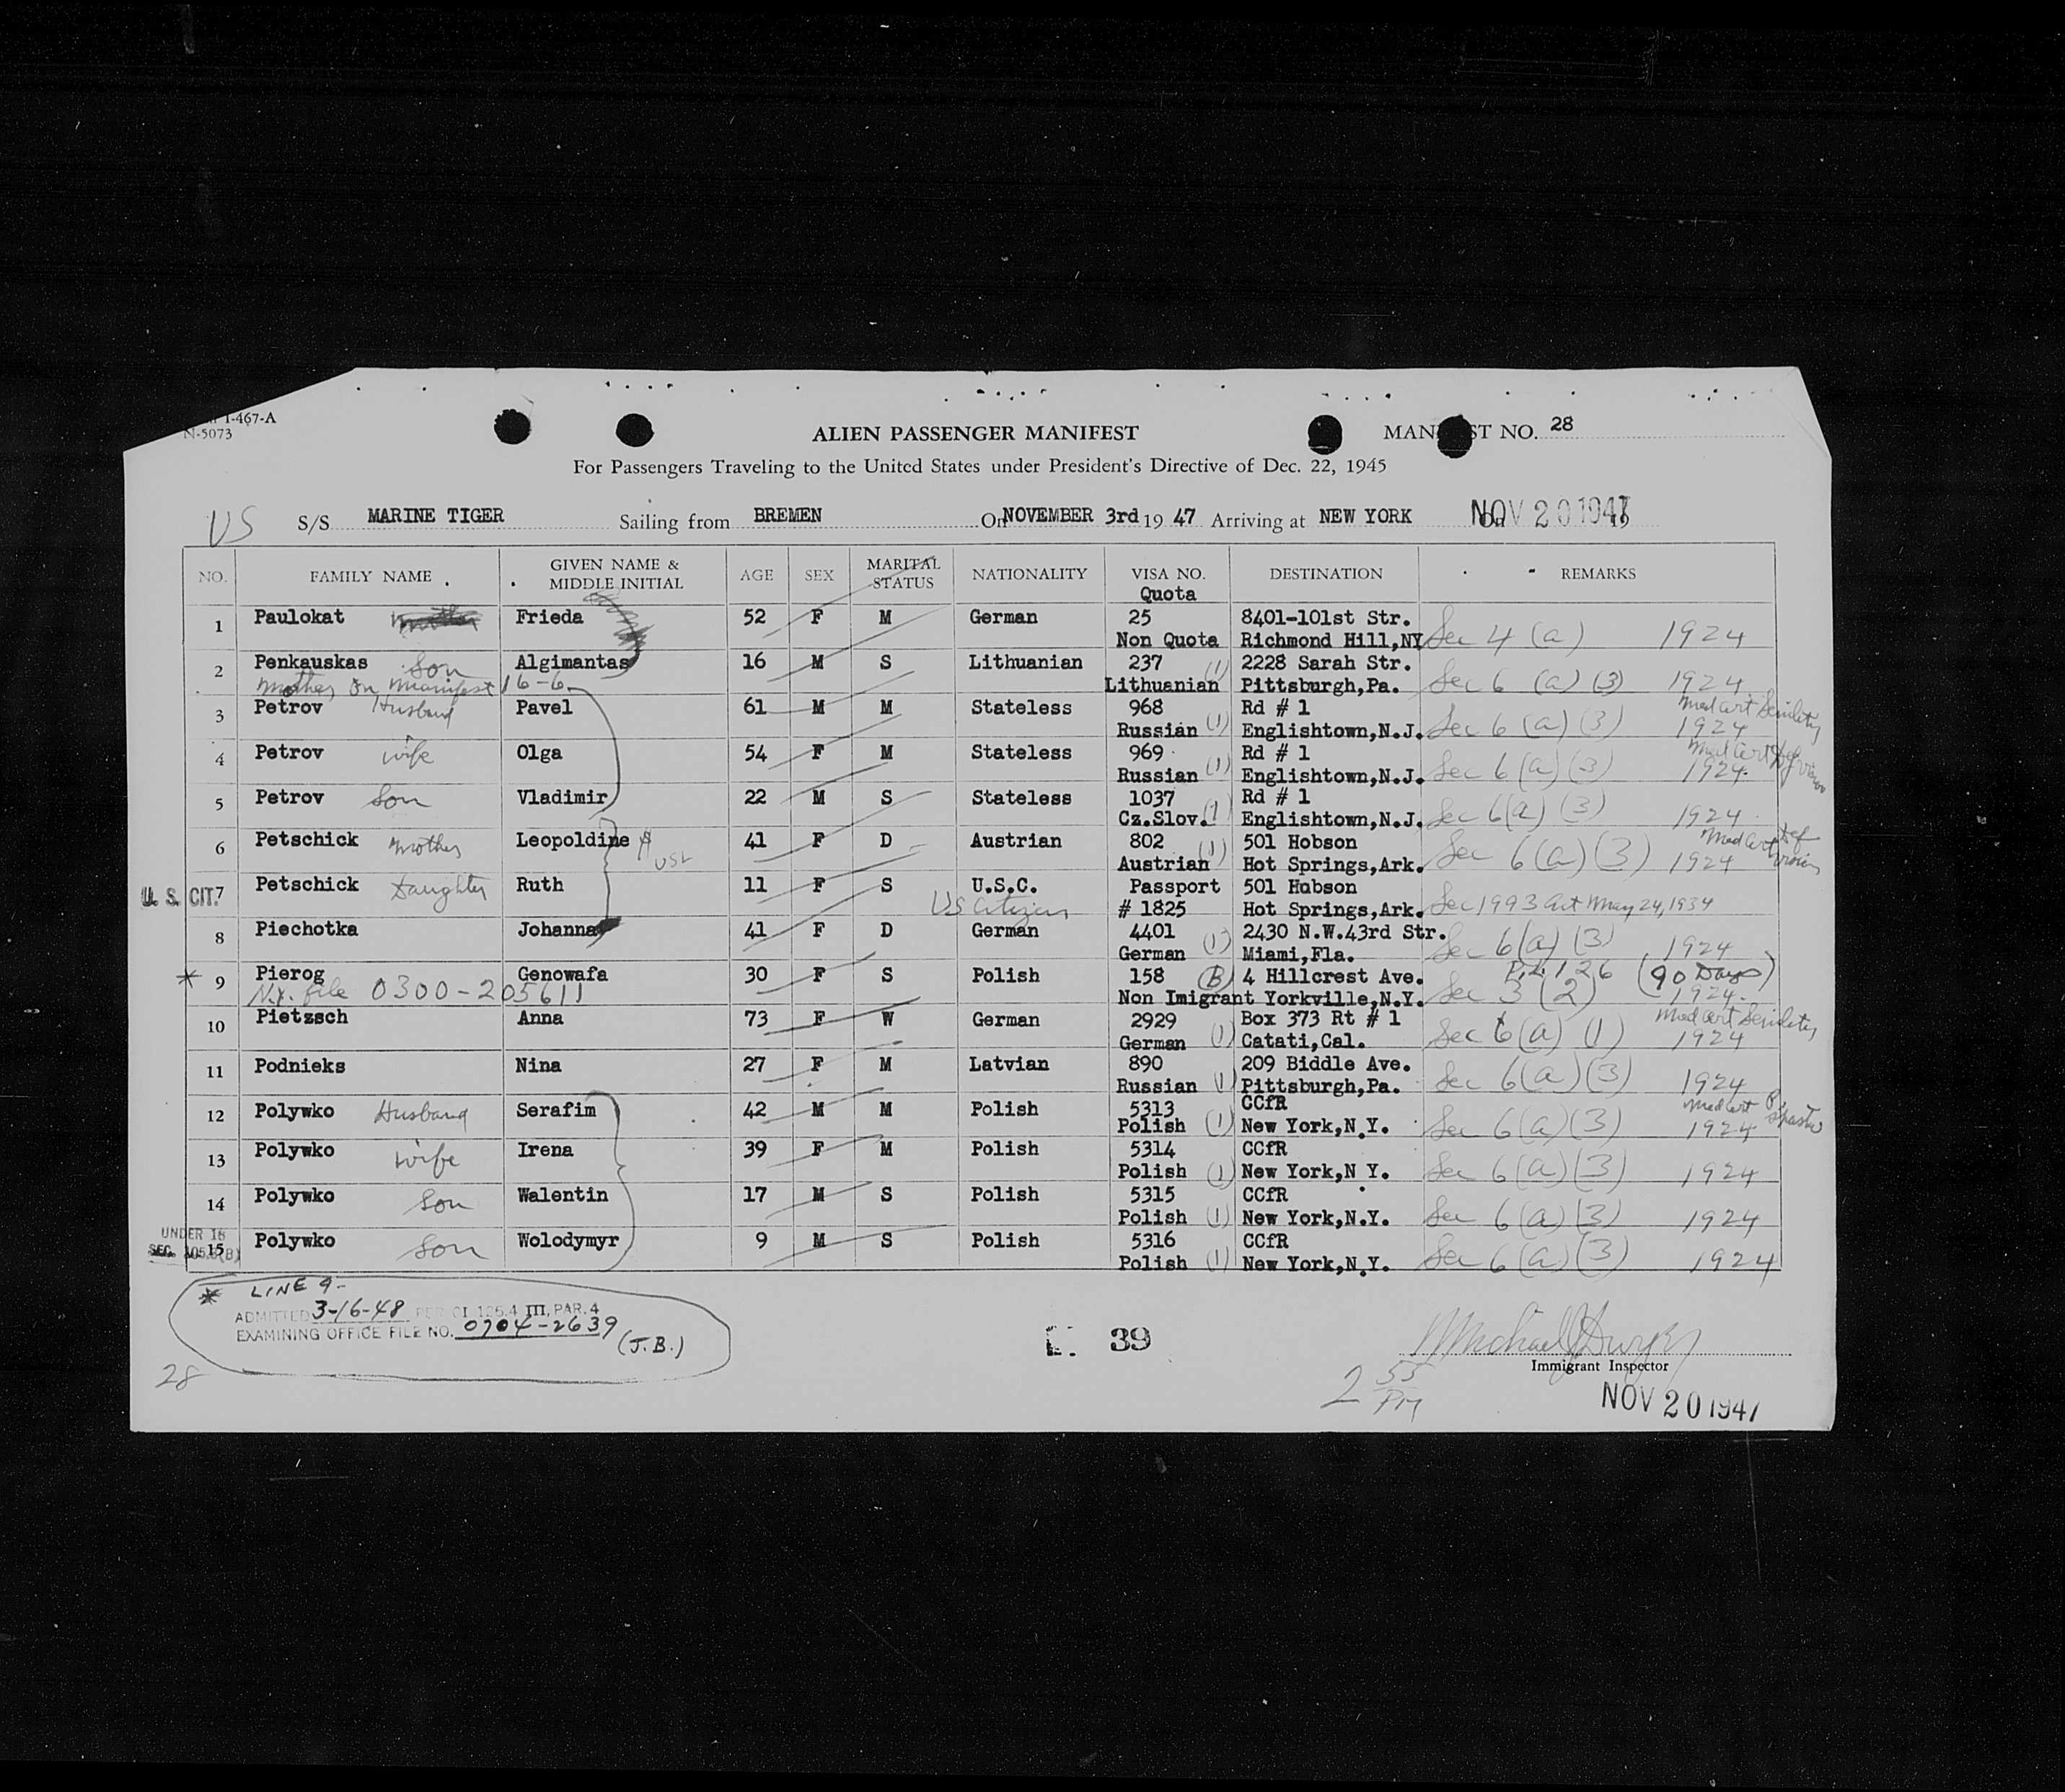 I-467-A
N-5073
ALIEN PASSENGER MANIFEST
MAN ST NO. 28
For Passengers Traveling to the United States under President's Directive of Dec. 22, 1945
US S/S MARINE TIGER Sailing from BREMEN On NOVEMBER 3rd 19 47 Arriving at NEW YORK On NOV 20 1947 19
NO. FAMILY NAME GIVEN NAME & MIDDLE INITIAL AGE SEX MARITAL STATUS NATIONALITY VISA NO. Quota DESTINATION REMARKS
1 Paulokat Frieda 52 F M German 25 8401-101st Str.
Non Quota Richmond Hill,NY Sec 4 (a) 1924
2 Penkauskas Son Algimantas 16 M S Lithuanian 237 (1) 2228 Sarah Str.
Mother on Manifest 16-6 Lithuanian Pittsburgh,Pa. Sec 6 (a) (3) 1924
3 Petrov Husband Pavel 61 M M Stateless 968 Rd # 1 Med Cert Senility
Russian (1) Englishtown,N.J. Sec 6 (a) (3) 1924
4 Petrov wife Olga 54 F M Stateless 969 Rd # 1 Med Cert Def vision
Russian (1) Englishtown,N.J. Sec 6 (a) (3) 1924
5 Petrov Son Vladimir 22 M S Stateless 1037 Rd # 1
Cz.Slov. (1) Englishtown,N.J. Sec 6(a) (3) 1924
6 Petschick Mother Leopoldine USC 41 F D Austrian 802 501 Hobson Med Cert def vision
Austrian (1) Hot Springs,Ark. Sec 6(a) (3) 1924
U. S. CIT. 7 Petschick Daughter Ruth 11 F S U.S.C. Passport 501 Hobson
US Citizen # 1825 Hot Springs,Ark. Sec 1993 Act May 24, 1934
8 Piechotka Johanna 41 F D German 4401 2430 N.W.43rd Str.
German (1) Miami,Fla. Sec 6(a) (3) 1924
* 9 Pierog Genowafa 30 F S Polish 158 (B) 4 Hillcrest Ave. (90 Days)
N.Y. file 0300-205611 Non Imigrant Yorkville,N.Y. Sec 3 (2) 1924
10 Pietzsch Anna 73 F W German 2929 Box 373 Rt # 1 Med Cert Senility
German (1) Catati,Cal. Sec 6(a) (1) 1924
11 Podnieks Nina 27 F M Latvian 890 209 Biddle Ave.
Russian (1) Pittsburgh,Pa. Sec 6(a) (3) 1924
12 Polywko Husband Serafim 42 M M Polish 5313 CCfR Med Cert
Polish (1) New York,N.Y. Sec 6(a) (3) 1924
13 Polywko wife Irena 39 F M Polish 5314 CCfR
Polish (1) New York,N Y. Sec 6(a) (3) 1924
14 Polywko Son Walentin 17 M S Polish 5315 CCfR
Polish (1) New York,N.Y. Sec 6(a) (3) 1924
UNDER 16
15 Polywko Son Wolodymyr 9 M S Polish 5316 CCfR
Polish (1) New York,N.Y. Sec 6(a) (3) 1924
* LINE 9-
ADMITTED 3-16-48 PER OI 125.4 III, PAR. 4
EXAMINING OFFICE FILE NO. 0704-2639
(J.B.)
39
28
2 55 PM
Immigrant Inspector
NOV 20 1947